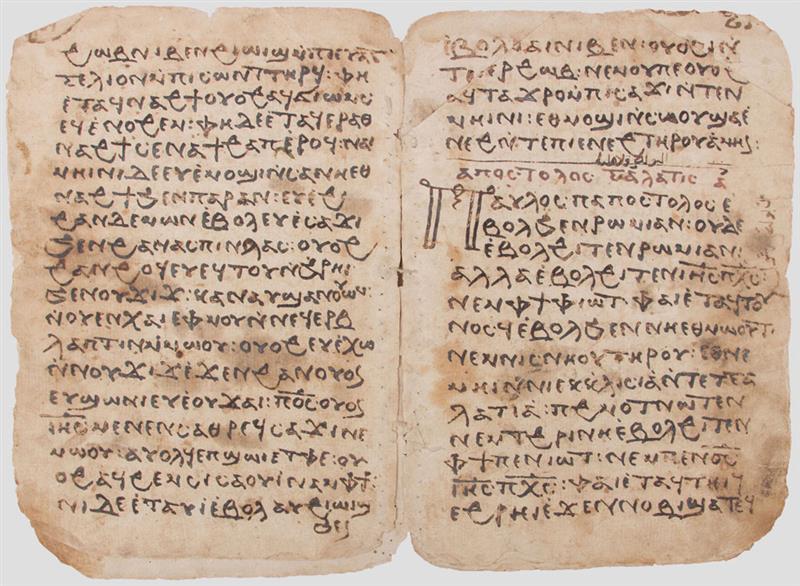 ϩⲱⲃ ⲛⲓⲃⲉⲛ ϩⲓⲱⲓϣ ⲙⲡⲓⲉⲩⲁⲅ
ⲅⲉⲗⲓⲟⲛ ⲙⲡⲓⲥⲱⲛⲧ ⲧⲏⲣϥ : ⲫⲏ
ⲉⲧⲁϥⲛⲁϩϯ ⲟⲩⲟϩ ⲁϥϭⲓⲱⲙⲥ
ⲉϥⲉⲛⲟϩⲉⲙ : ⲫⲏ ⲇⲉ ⲉⲧⲁϥⲉⲣⲁⲑ
ⲛⲁϩϯ ⲥⲉⲛⲁϯϩⲁⲡ ⲉⲣⲟϥ : ⲛⲁⲓ
ⲙⲏⲓⲛⲓ ⲇⲉ ⲉⲩⲉⲙⲟϣⲓ ⲛⲥⲁ ⲛⲏⲉⲑ
ⲛⲁϩϯ ϧⲉⲛ ⲡⲁⲣⲁⲛ : ⲉⲩⲉϩⲓ
ϩⲁⲛⲇⲉⲙⲱⲛ ⲉⲃⲟⲗ ⲉⲩⲉⲥⲁϫⲓ
ϧⲉⲛ ϩⲁⲛⲁⲥⲡⲓ ⲛⲗⲁⲥ : ⲟⲩⲟϩ
ϩⲁⲛϩⲟϥ ⲉⲩⲉϥⲓⲧⲟⲩ ⲛϩⲣⲏⲓ
ϧⲉⲛ ⲟⲩϫⲓϫ : ⲕⲁⲛ ⲁⲩϣⲁⲛⲟⲩⲱⲙ
ⲛⲟⲩⲉⲛⲭⲁⲓ ⲉϥⲙⲟⲩ ⲛⲛⲉϥⲉⲣⲃ
ⲗⲁⲡⲧⲓⲛ ⲙⲙⲱⲟⲩ : ⲟⲩⲟϩ ⲉⲩⲉⲭⲱ
ⲛⲛⲟⲩϫⲓϫ ⲉϫⲉⲛ ϩⲁⲛⲟⲩⲟⲥ
ⲉⲩϣⲱⲛⲓ ⲉⲩⲉⲟⲩϫⲁⲓ : ⲡ̅ϭ̅ⲥ̅ ⲟⲩⲟⲥ
ⲓ̅ⲏ̅ⲥ̅ ⲙⲉⲛⲉⲛⲥⲁ ⲑⲣⲉϥⲥⲁϫⲓ ⲛⲉ
ⲙⲱⲟⲩ : ⲁⲩⲟⲗϥ ⲉⲡϣⲱⲓ ⲉⲧⲫⲉ : ⲟⲩ
ⲟϩ ⲁϥϩⲉⲙⲥⲓ ⲥⲁⲟⲩⲓⲛⲁⲙ ⲙⲫϯ :
ⲛⲓ ⲇⲉ ⲉⲧⲁⲩⲓ ⲉⲃⲟⲗ ⲁⲩϩⲓⲱⲓϣ
ⲉⲃⲟⲗ ϧⲁⲓ ⲛⲓⲃⲉⲛ : ⲟⲩⲟϩ ⲓⲛ
ⲧⲓ ⲉⲣϩⲱⲃ ⲛⲉⲙⲟⲩ ⲡⲉ ⲟⲩⲟϩ
ⲁϥⲧⲁϫⲣⲟ ⲙⲡⲓⲥⲁϫⲓ ⲛⲧⲉⲛ
ⲙⲏⲓⲛⲓ : ⲉⲑⲙⲟϣⲓ ⲛⲥⲱⲟⲩ ϣⲁⲉ
ⲛⲉϩ ⲛⲧⲉ ⲡⲓⲉⲛⲉϩ ⲧⲏⲣⲟⲩ ⲁⲙⲏⲛ :
ⲁⲡⲟⲥⲧⲟⲗⲟⲥ ⲅⲁⲗⲁⲧⲓⲥ ⲁ
ⲡⲁⲩⲗⲟⲥ ⲡⲁⲡⲟⲥⲧⲟⲗⲟⲥ ⲉ
ⲃⲟⲗ ϧⲉⲛ ⲣⲱⲙⲓ ⲁⲛ : ⲟⲩⲇⲉ
ⲉⲃⲟⲗ ϩⲓⲧⲉⲛ ⲣⲱⲙⲓ ⲁⲛ :
ⲁⲗⲗⲁ ⲉⲃⲟⲗ ϩⲓⲧⲉⲛ ⲓ̅ⲏ̅ⲥ̅ ⲡ̅ⲭ̅ⲥ̅
ⲛⲉⲙ ⲫϯ ⲫⲓⲱⲧ ⲫⲁⲓ ⲉⲧⲁϥⲧⲟⲩ
ⲛⲟⲥϥ ⲉⲃⲟⲗ ϧⲉⲛ ⲛⲏⲉⲑⲙⲱⲟⲩⲧ
ⲛⲉⲙ ⲛⲓⲥⲛⲏⲟⲩ ⲧⲏⲣⲟⲩ : ⲉⲑⲛⲉ
ⲙⲏⲓ ⲛⲛⲓⲉⲕⲕⲗⲏⲥⲓⲁ ⲛⲧⲉ ϯⲅⲁ
ⲗⲁⲧⲓⲁ : ⲡϩⲙⲟⲧ ⲛⲱⲧⲉⲛ
ⲛⲉⲙ ⲧϩⲓⲣⲏⲛⲏ ⲉⲃⲟⲗ ϩⲓⲧⲉⲛ
ⲫϯ ⲡⲉⲛⲓⲱⲧ : ⲛⲉⲙ ⲡⲉⲛⲟ̅ⲥ̅
ⲓ̅ⲏ̅ⲥ̅ ⲡ̅ⲭ̅ⲥ̅ : ⲫⲁⲓ ⲉⲧⲁϥⲧⲏⲓϥ
ⲉϩⲣⲏⲓ ⲉϫⲉⲛ ⲛⲟⲃⲓ ϣⲁⲧⲉϥ